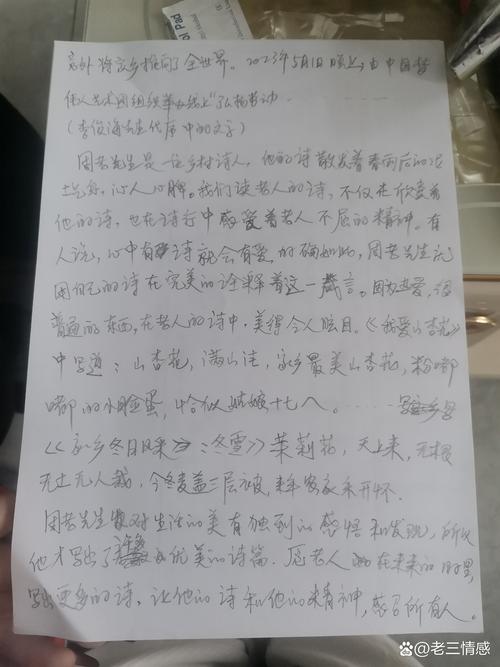 意外将家乡推向了全世界。2023年5月1日晚上,由中国梦
伟人艺术团组织举办线上"弘扬劳动
(李俊海先生代序中的文字)
周老先生是一位乡村诗人,他的诗散发着春雨后的泥
土气息,沁人心脾。我们读老人的诗,不仅在欣赏着
他的诗,也在诗行中感受着老人不屈的精神。有
人说,心中有诗就会有爱,的确如此,周老先生就
用自己的诗在完美的诠释着这一箴言。因为热爱,很
普通的东西,在老人的诗中,美得令人眩目。《我爱山杏花》
中写道:山杏花,满山洼,家乡最美山杏花,粉嘟
嘟的小脸蛋,恰似姑娘十七八。……
《家乡冬日风采:冬雪》茉莉花,天上来,无根
无土无人栽,今冬麦盖三层被,来年农家乐开怀.
周老先生对生活的美有独到的感悟和发现,所以
他才写出了许多优美的诗篇.愿老人在未来的时里,
写出更多的诗,让他的诗和他的精神,感召所有人。
@老三情感